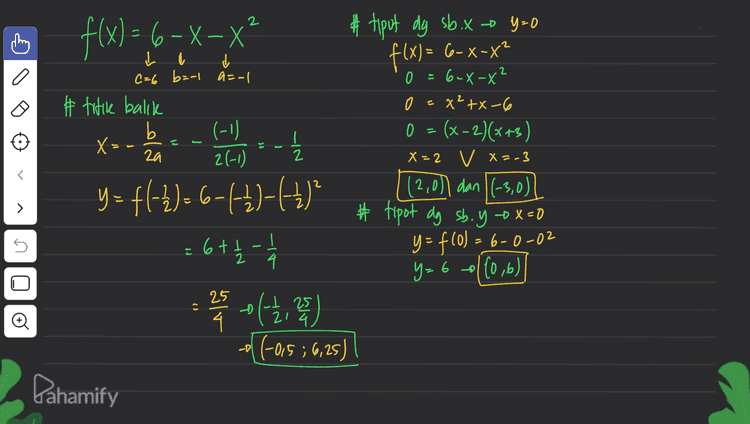 f(x) = 6 - x - x²
c=6 b=-1 a=-1
# titik balik
x = - b/2a = - (-1)/2(-1) = - 1/2
y = f(-1/2) = 6 - (-1/2) - (-1/2)²
= 6 + 1/2 - 1/4
= 25/4 → (-1/2, 25/4)
→ (-0,5 ; 6,25)
# tipot dg sb.x → y=0
f(x) = 6-x-x²
0 = 6-x-x²
0 = x²+x-6
0 = (x-2)(x+3)
x=2 V x=-3
(2,0) dan (-3,0)
# tipot dg sb.y → x=0
y = f(0) = 6-0-0²
y=6 → (0,6)
Pahamify